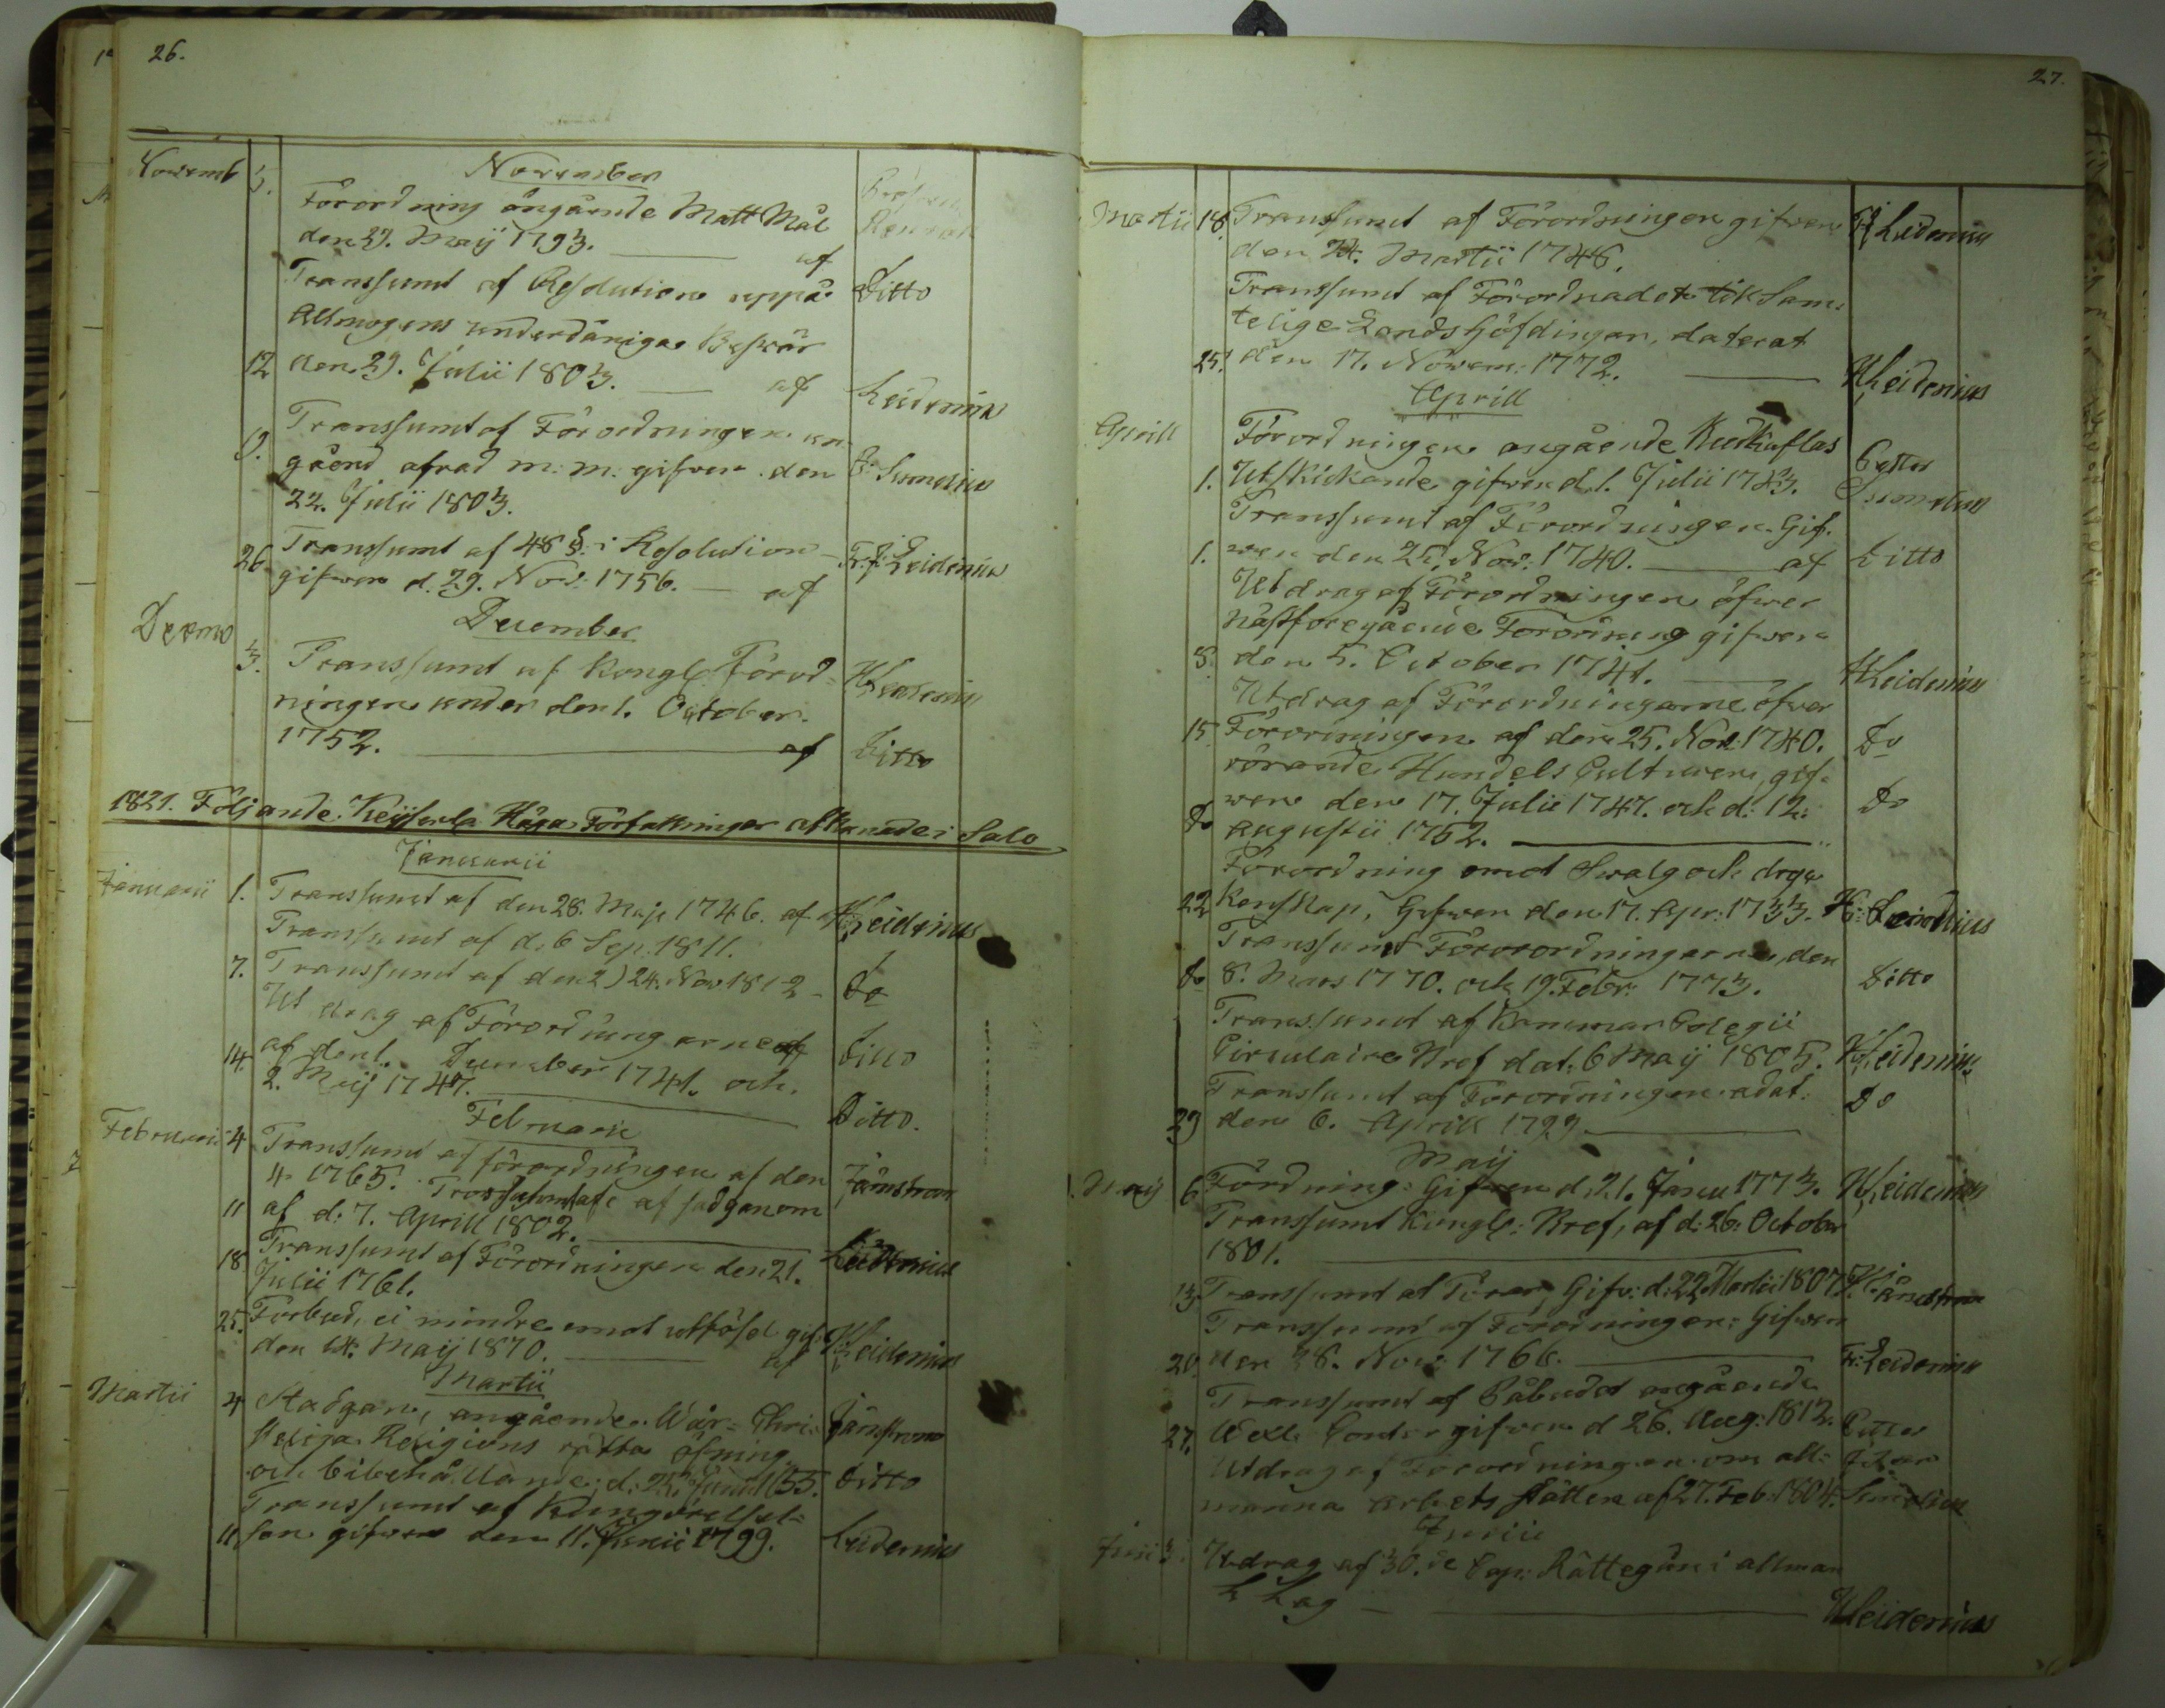 26.
November
Novemb 5. Förordning angående Matt Mål
den 29. Maij 1793. af
Transsumt af Resolution uppå Ditto
Allmogens underdåniga Besvär
12 den 29. Julii 1803. af Leidenius
Transsumt af Förordningen an
gåend afrad m: m: gifven den Sumelius
22. Julii 1803.
26 Transsumt af 48 §. i Resolution Fr: Leidenius
gifven d. 29. Nov. 1756. af
December
Decemb 3. Transsumt af Kongl Förord=
ningen under den 1. October
1752. af Ditto
1821. Följande Keijserla Höga Författningar afkunnade i Salo
Januarii
Januarii 1. Transsumt af den 28. Maji 1746. af Leidenius
Transsumt af d. 6 Sep. 1811.
7. Transsumt af den 24. Nov 1812 Do
Utdrag af Förordningarne af
14. af den 1. December 1741. och Ditto
2. Maij 1747. Ditto.
Februarii
Februarii 4 Transsumt af förordningen af den
4. 1765. Jämstram
11 af d: 7. Aprill 1802.
18 Transsumt af Förordningen den 21. Leidenius
Julii 1761.
25. Förbud, ei mindre emot
den 14. Maij 1810. af Leidenius
Martii
Martii 4 Stadgan, angående Wår Chri=
stelija Religions rätta öfning
och bibehållande, d: Ditto
Transsumt af Kungörelsel=
11. sen gifven den 11. Junii 1799. Leidenius
27.
Martii 18. Transsumt af Förordningen gifven Leidenius
den 24. Martii 1746.
Transsumt af Förordnadet til Sam=
telige Landshöfdingar, daterat
25. den 17. Novem: 1772. Leidenius
Aprill
Aprill Förordningen angående Budkaflas
1. Utskickande gifven d. 1. Julii 1783. Sumelius
Transsumt af Förordningen Gif=
1. ven den 25. Nov: 1740. af Ditto
Utdrag af Förordningen öfver
Näst foregående Förordning gifven
8. den 5. October 1741. Leidenius
Utdrag af Förordningarne öfver
15. Förordningen af den 25. Nov: 1740. Do
rörande Handels Culturen, gif=
Do ven den 17. Julii 1747. och d: 12. Do
Augustii 1752.
Förordning emot Swalg och dryc
22 kenskap, Gifven den 17. Apr: 1733. Leidenius
Transsumt Förordningarne, den
Do 8. Mars 1770. och 19. Febr: 1773. Ditto
Transsumt af Kammar Colegii
Circulaire Bref dat. 6 Maij 1805. Leidenius
Transsumt af Förordningen dat:
29 den 6. Aprill 1729 Do
Maij
Maij 6. Fördning: Gifven d. 21. Janu 1773. Leidenius
Transsumt Kongl: Bref, af d: 26. October
1801.
13. Transsumt af Föror, Gifv: d: 22 Martii 1807.
Transsumt af Förordningen: Gifven
20. den 28. Nov: 1766. Fr: Leidenius
Transsumt af Påbudet angående
27. gifven d 26. Aug: 1812.
Utdrag af Förordningen om all=
manna arbets ställen af 27. Feb: 1804. Sumelius
Junii
Junii 3. Utdrag af 30. de Cap: Rättegån i allman
Lag Leidenius